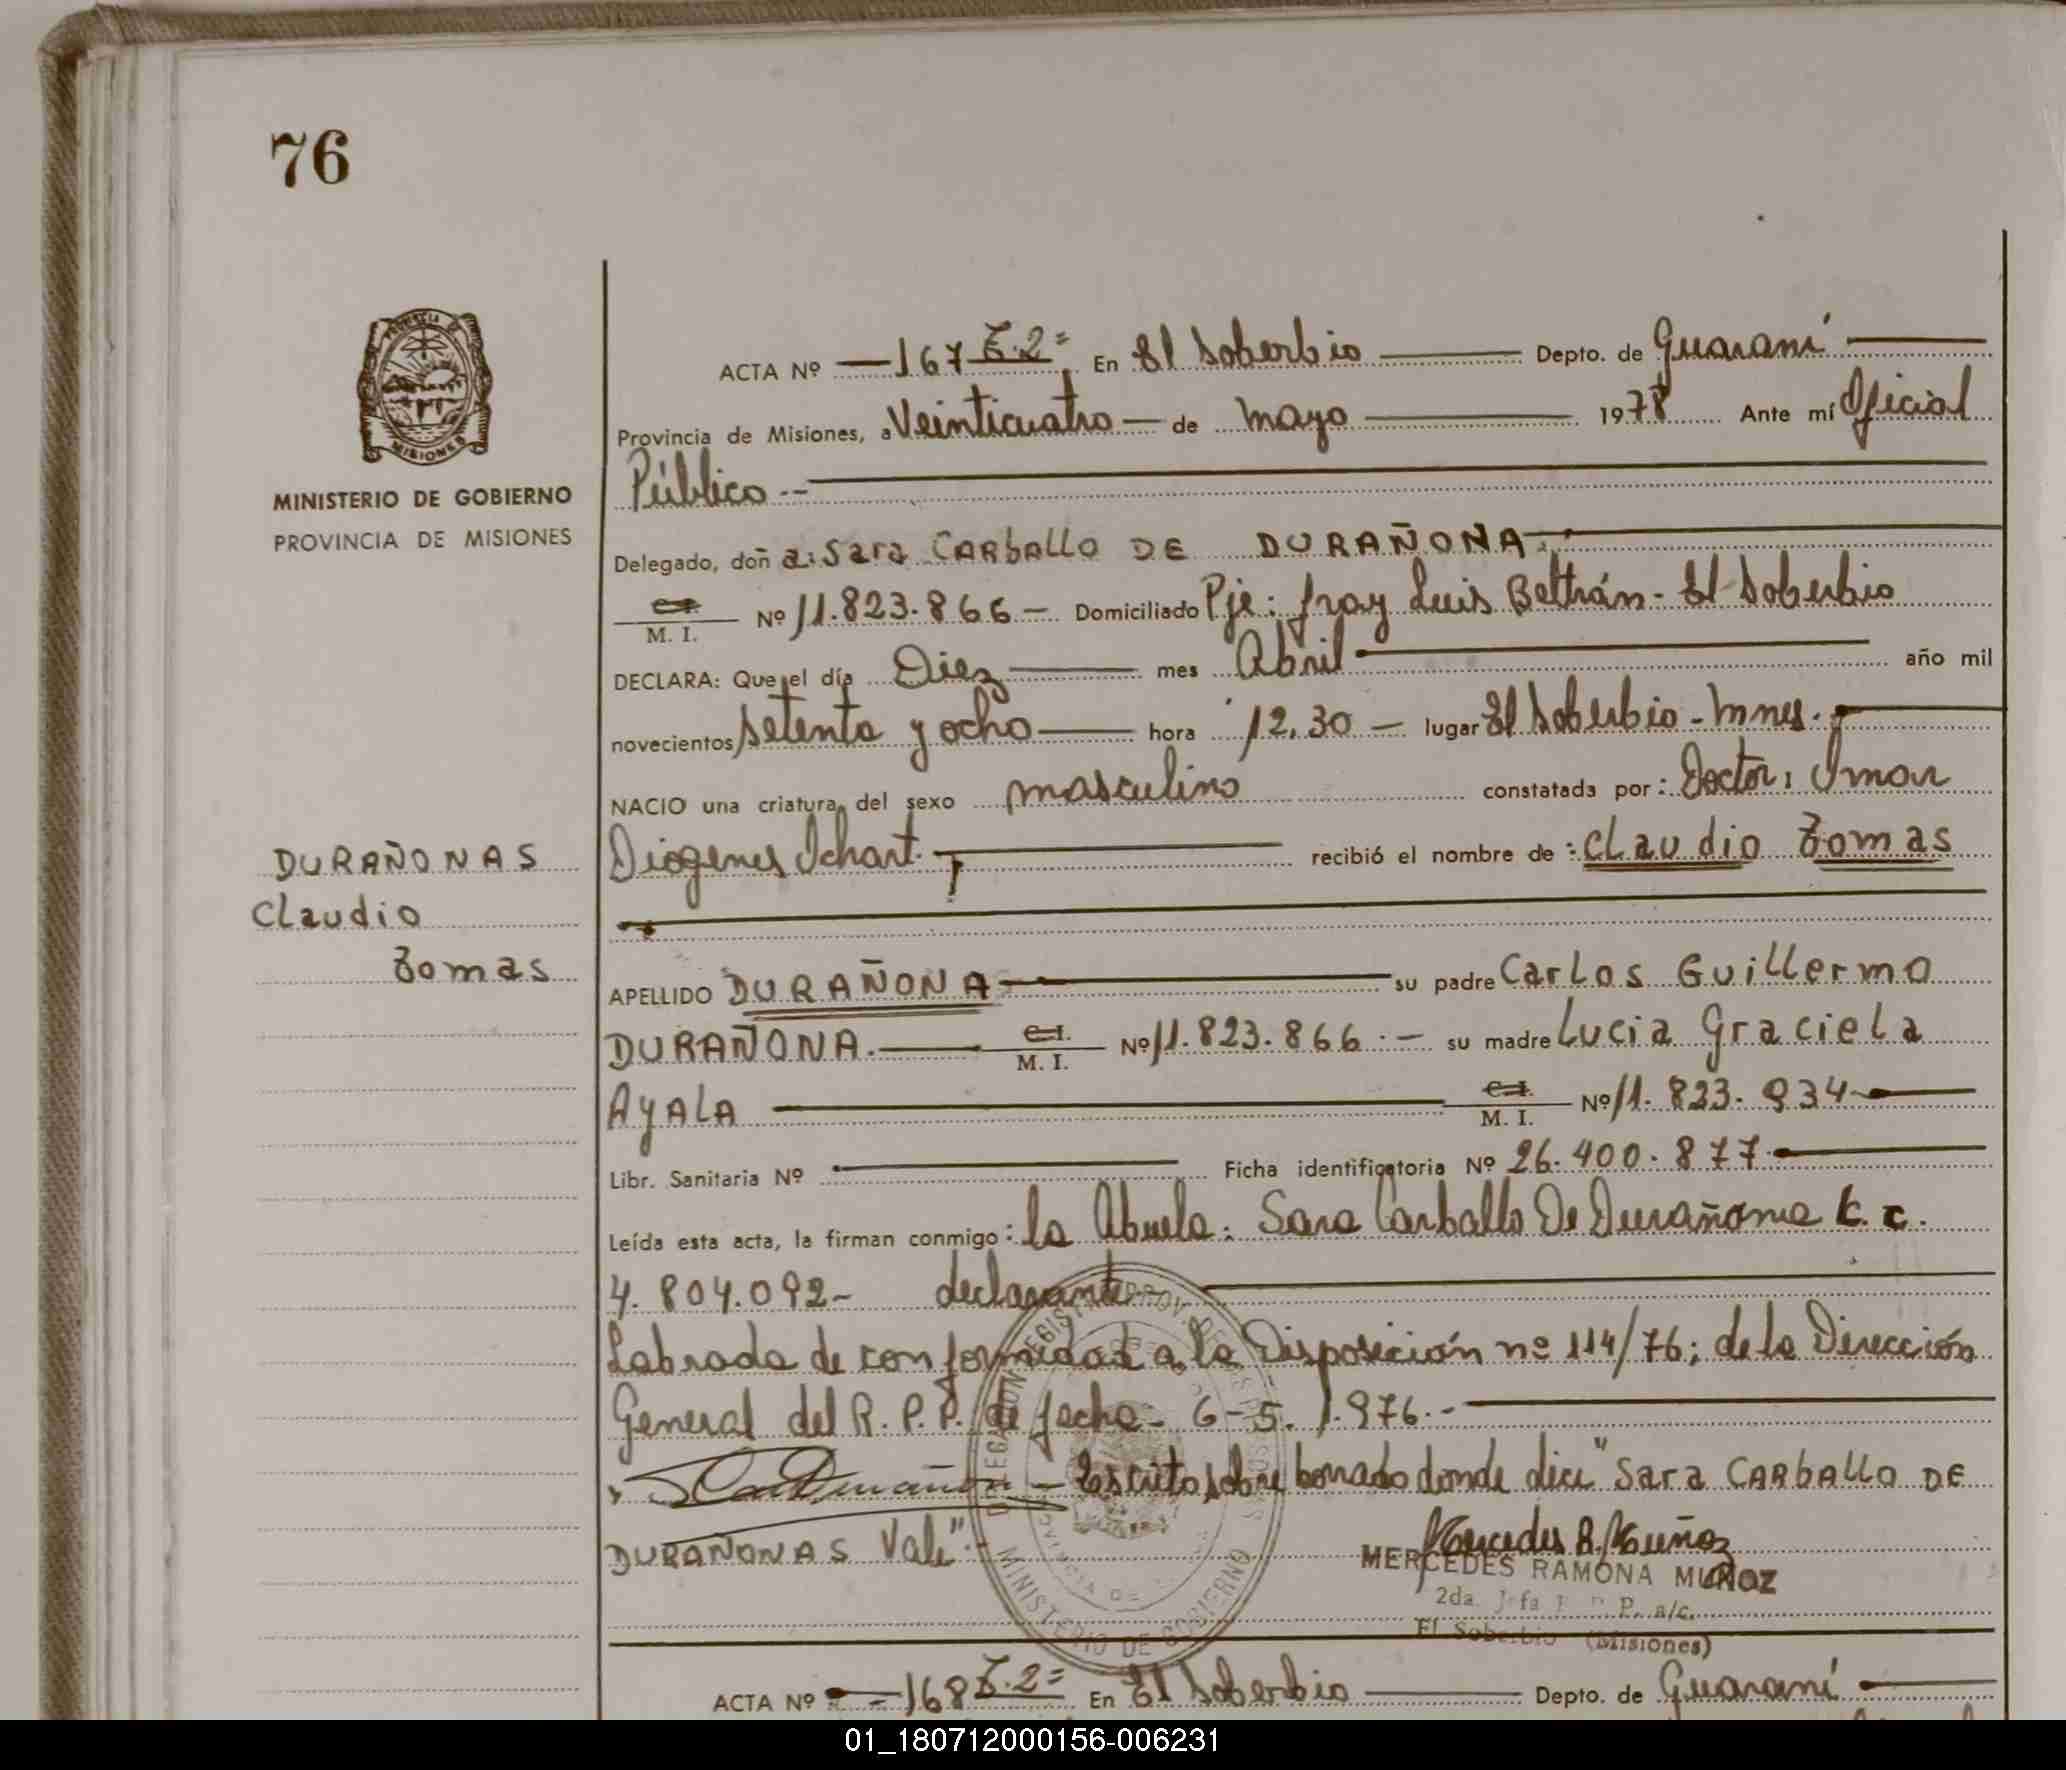 76
PROVINCIA DE
MISIONES
MINISTERIO DE GOBIERNO
PROVINCIA DE MISIONES
DURAÑONAS
Claudio
Tomas
ACTA Nº —167 T.2= En El Soberbio — Depto. de Guaraní —
Provincia de Misiones, a Veinticuatro — de mayo — 1978 Ante mí Oficial
Público --
Delegado, doña: Sara CARBALLO DE DURAÑONA.
C.I. M. I. Nº 11.823.866 — Domiciliado Pje: fray Luis Beltrán - El Soberbio
DECLARA: Que el día Diez — mes Abril — año mil
novecientos setenta y ocho — hora 12,30 — lugar El Soberbio - Mnes.
NACIO una criatura del sexo masculino constatada por: Doctor: Omar
Diogenes Ichart. — recibió el nombre de: Claudio Tomas
APELLIDO DURAÑONA — su padre Carlos Guillermo
DURAÑONA. — C.I. M. I. Nº 11.823.866.— su madre Lucia Graciela
AYALA — C.I. M. I. Nº 11.823.934 —
Libr. Sanitaria Nº — Ficha identificatoria Nº 26.400.877 —
Leída esta acta, la firman conmigo: la Abuela: Sara Carballo De Durañona L. C.
4.804.092- declarante —
Labrada de conformidad a la Disposición nº 114/76; de la Dirección
General del R. P. P. de fecha- 6-5.1.976.-
— Escrito sobre borrado donde dice "Sara CARBALLO DE
DURAÑONAS Vale".-
Mercedes R. Muñoz
MERCEDES RAMONA MUÑOZ
2da. Jefa P. P. a/c.
El Soberbio (Misiones)
MINISTERIO DE GOBIERNO
ACTA Nº —168 T.2= En El Soberbio — Depto. de Guaraní —
01_180712000156-006231